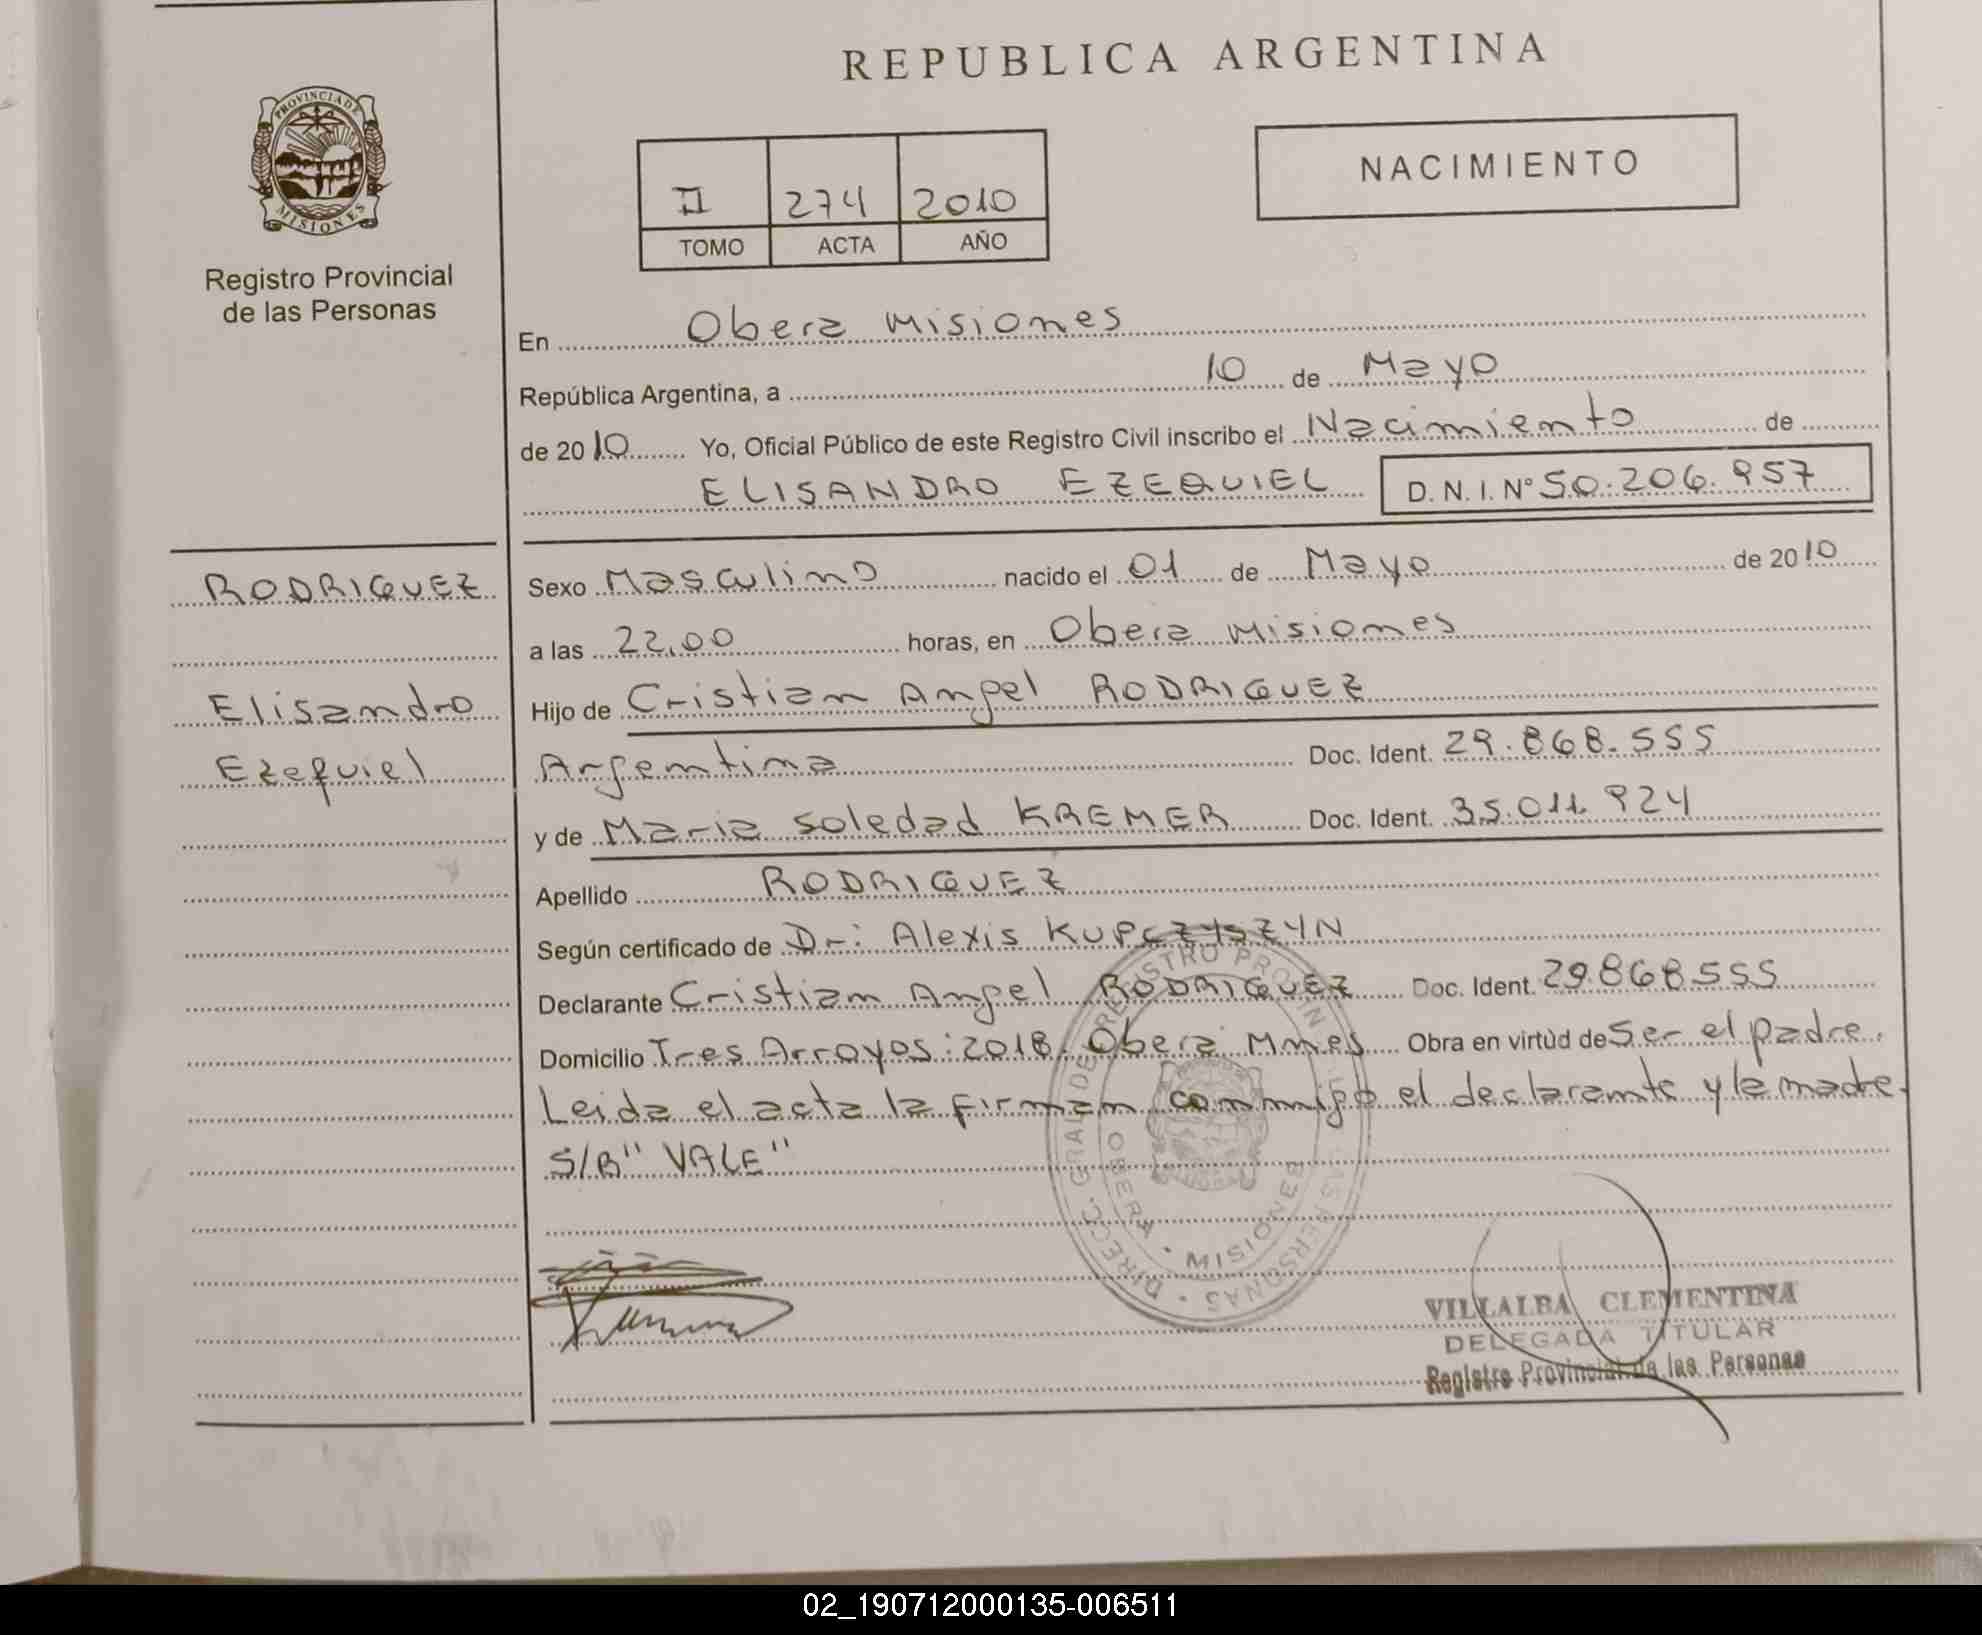 REPUBLICA ARGENTINA
PROVINCIA DE
MISIONES
Registro Provincial
de las Personas
II 274 2010
TOMO ACTA AÑO
NACIMIENTO
En Obera Misiones
República Argentina, a 10 de Mayo
de 2010 Yo, Oficial Público de este Registro Civil inscribo el Nacimiento de
ELISANDRO EZEQUIEL D.N.I. Nº 50.206.957
RODRIGUEZ
Elisandro
Ezequiel
Sexo Masculino nacido el 01 de Mayo de 2010
a las 22,00 horas, en Obera Misiones
Hijo de Cristian Angel RODRIGUEZ
Argentina Doc. Ident. 29.868.555
y de Maria Soledad KREMER Doc. Ident. 35.011.924
Apellido RODRIGUEZ
Según certificado de Dr: Alexis KUPCZYSZYN
Declarante Cristian Angel RODRIGUEZ Doc. Ident. 29.868.555
Domicilio Tres Arroyos: 2018. Obera Mnes Obra en virtùd de Ser el padre.
Leida el acta la firman conmigo el declarante y la madre.
S/B" VALE"
DIRECC. GRAL. DE REGISTRO PROVINCIAL DE LAS PERSONAS
OBERA • MISIONES
VILLALBA CLEMENTINA
DELEGADA TITULAR
Registro Provincial de las Personas
02_190712000135-006511